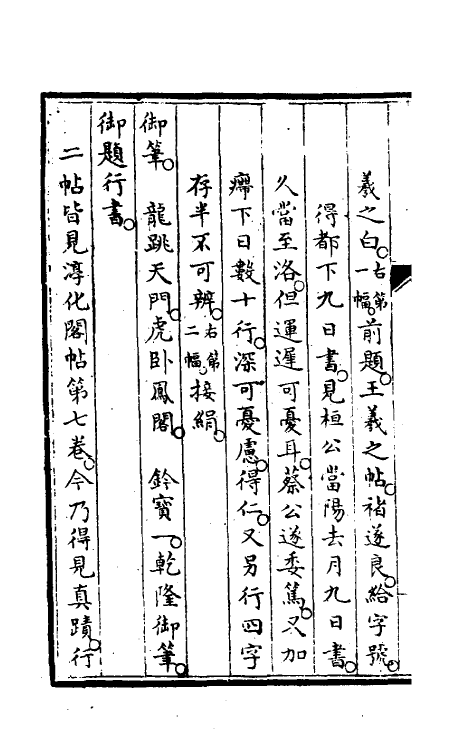 羲之白。右第一幅。前題。王羲之帖。褚遂良。給字號。
得都下九日書。見桓公當陽去月九日書。
久當至洛。但運遲可憂耳。蔡公遂委篤。又加
㿃下日數十行。深可憂慮。得仁。又另行四字
存半不可辨。右第二幅。接絹。
御筆。 龍跳天門。虎臥鳳閣。 鈐寶一。乾隆御筆。
御題行書。
二帖皆見淳化閣帖第七卷。今乃得見真蹟。行